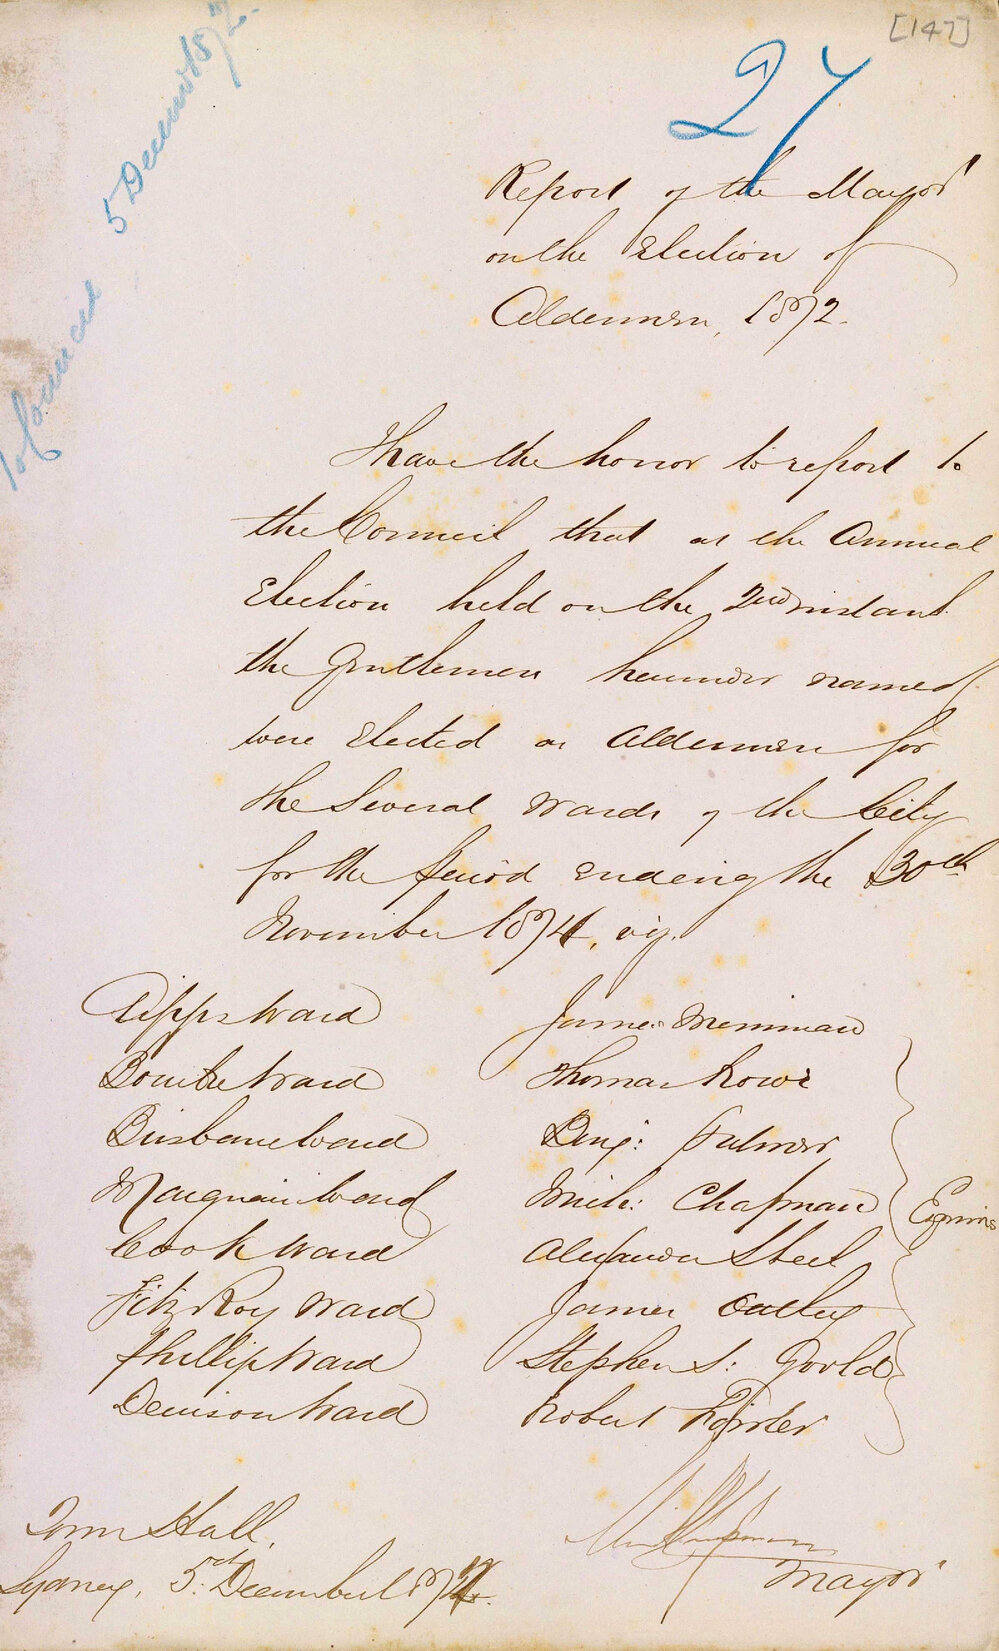 [147]
27
5 December 1872
To Council
Report of the Mayor
on the Election of
Aldermen, 1872.
I have the honor to report to
the Council that at the Annual
Election held on the 2nd instant
the Gentlemen hereunder named
were Elected as Aldermen for
the Several Wards of the City
for the period ending the 30th
November 1874, viz.
Gipps Ward James Merriman
Bourke Ward Thomas Rowe
Brisbane Ward Benj: Palmer
Macquarie Ward Mich: Chapman
Cook Ward Alexander Steel
FitzRoy Ward James Oatley
Phillip Ward Stephen S: Goold
Denison Ward Robert Forster
Esquires
Town Hall,
Sydney, 5th December 1872.
Mayor